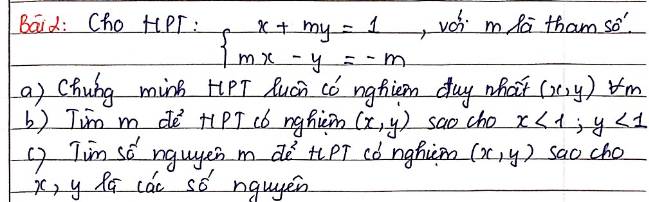 Bài 2: Cho HPT: { x + my = 1 , với m là tham số.
mx - y = -m
a) Chứng minh HPT luôn có nghiệm duy nhất (x,y) ∀m
b) Tìm m để HPT có nghiệm (x,y) sao cho x<1; y<1
c) Tìm số nguyên m để HPT có nghiệm (x,y) sao cho
x, y là các số nguyên